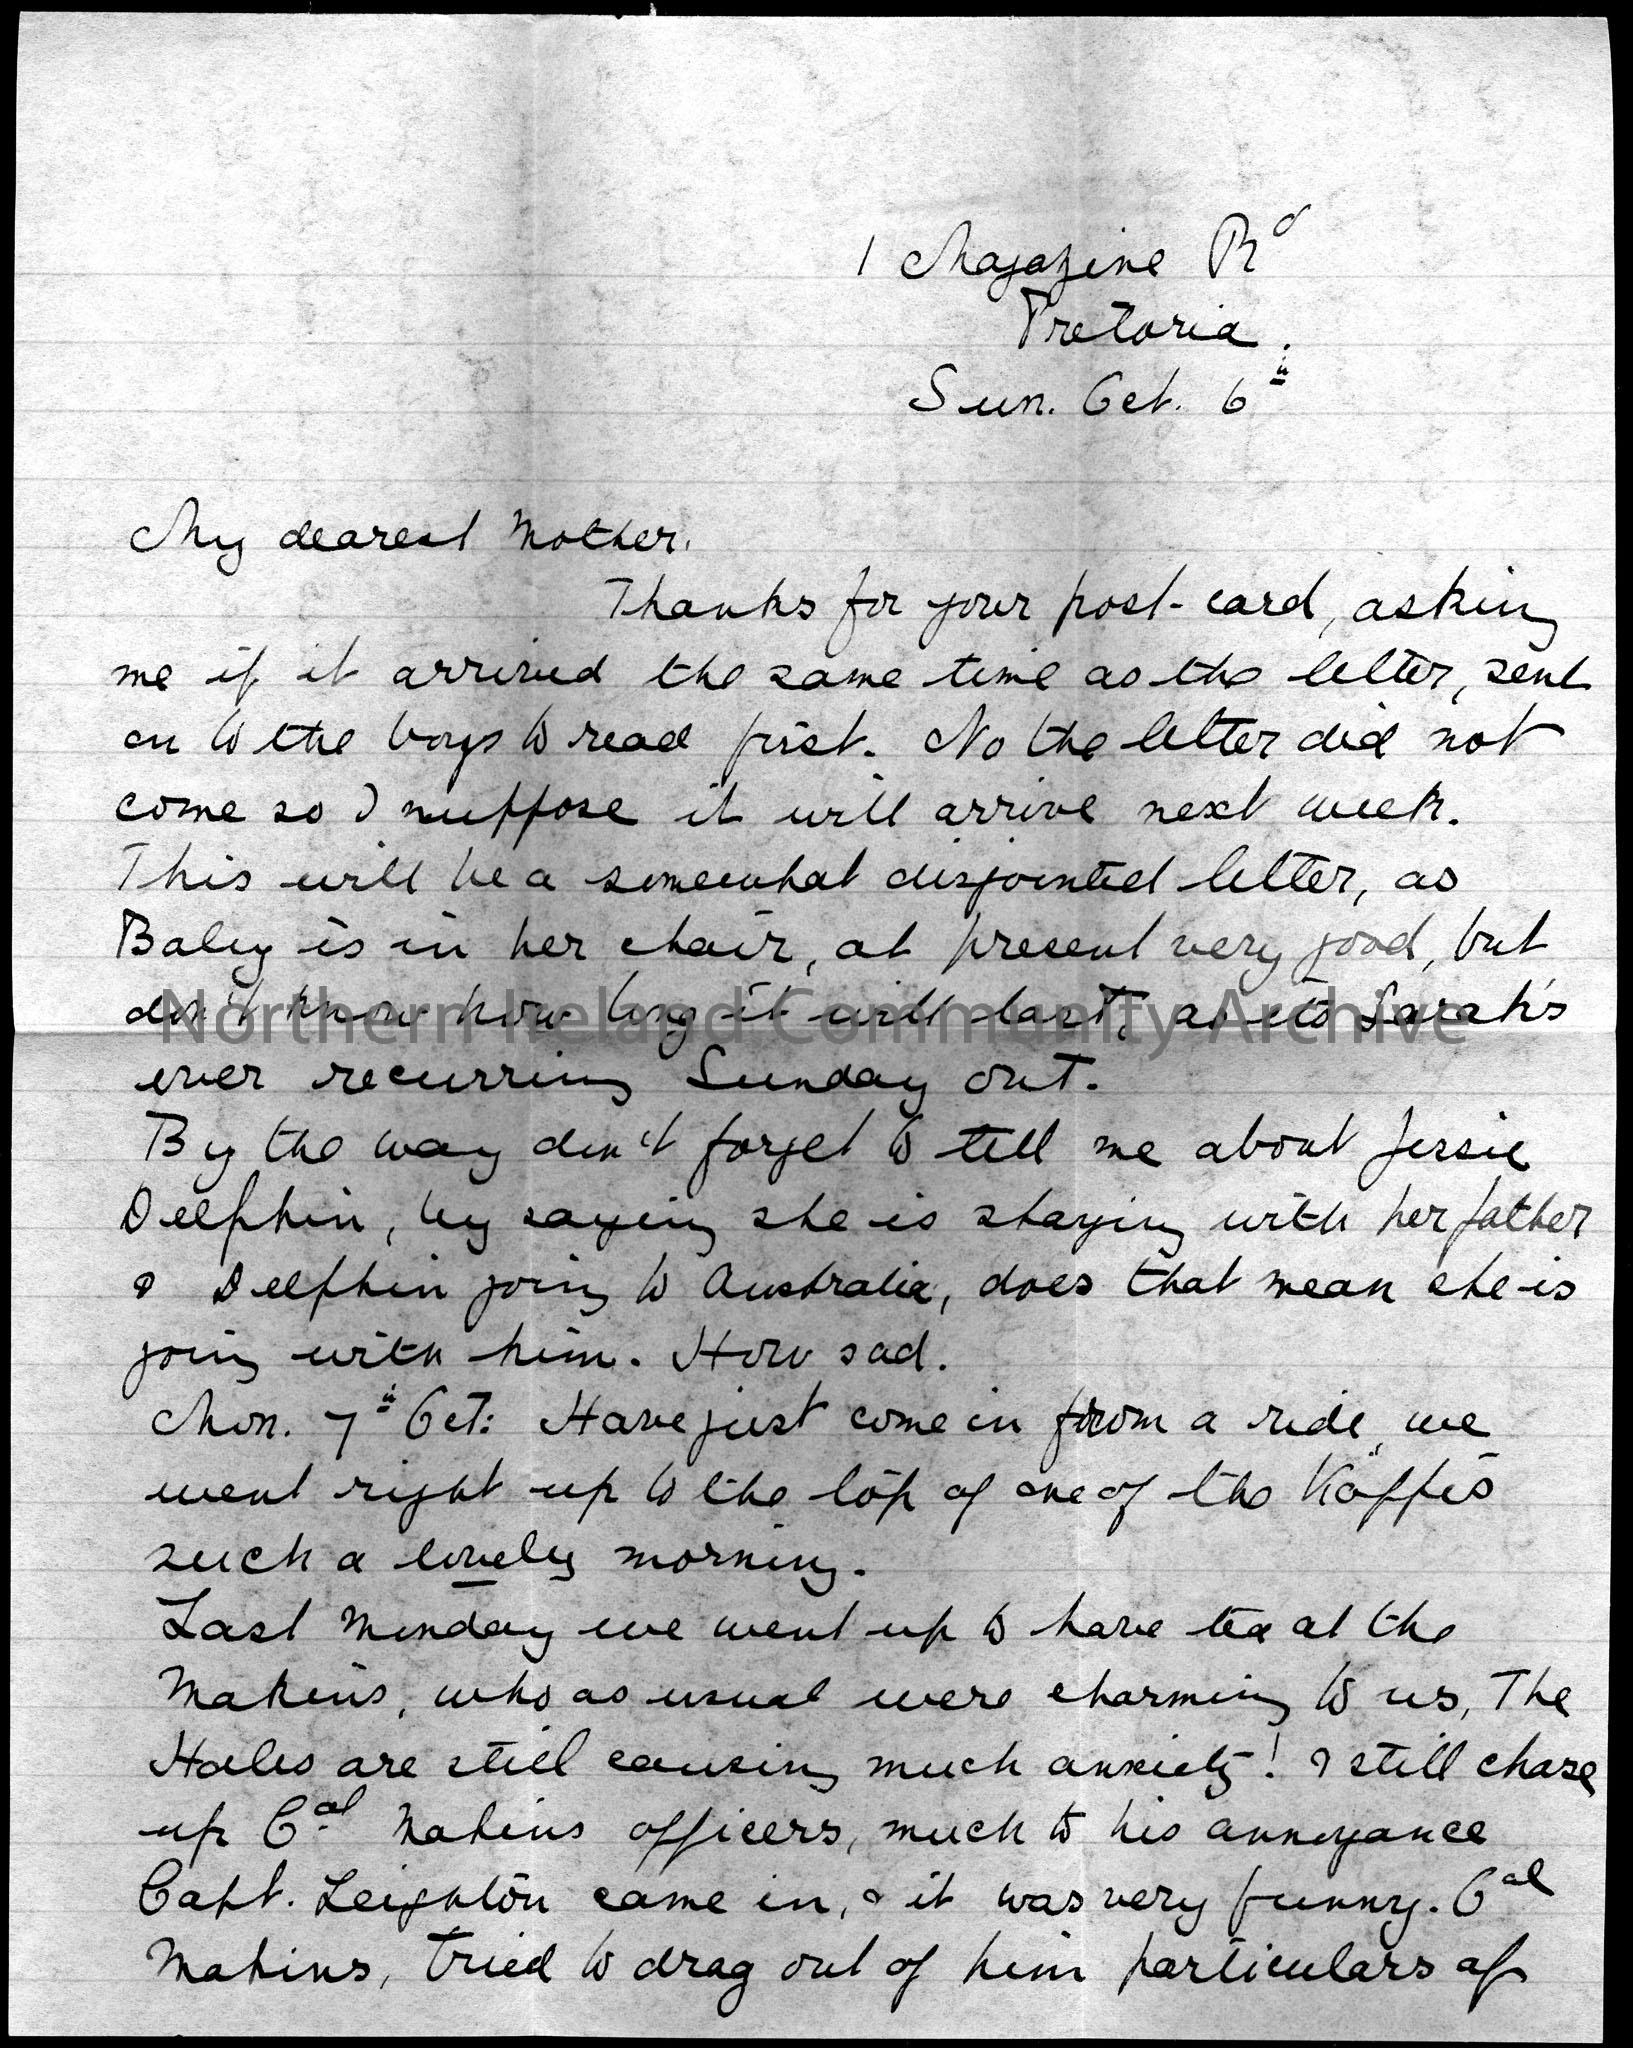 1 Magazine Rd
Pretoria.
Sun. Oct. 6th
My dearest Mother,
Thanks for your post-card, asking
me if it arrived the same time as the letter, sent
on to the boys to read first. No the letter did not
come so I suppose it will arrive next week.
This will be a somewhat disjointed letter, as
Baby is in her chair, at present very good, but
don't know how long it will last, as it's Sarah's
ever recurring Sunday out.
Northern Ireland Community Archive
By the way don't forget to tell me about Jessie
Delphin, by saying she is staying with her father
& Delphin going to Australia, does that mean she is
going with him. How sad.
Mon. 7th Oct: Have just come in from a ride, we
went right up to the top of one of the Koppies
such a lovely morning.
Last Monday we went up to have tea at the
Makins, who as usual were charming to us, The
Hales are still causing much anxiety! & still chase
up Col Makins officers, much to his annoyance
Capt. Leighton came in, & it was very funny. Col
Makins, tried to drag out of him particulars of